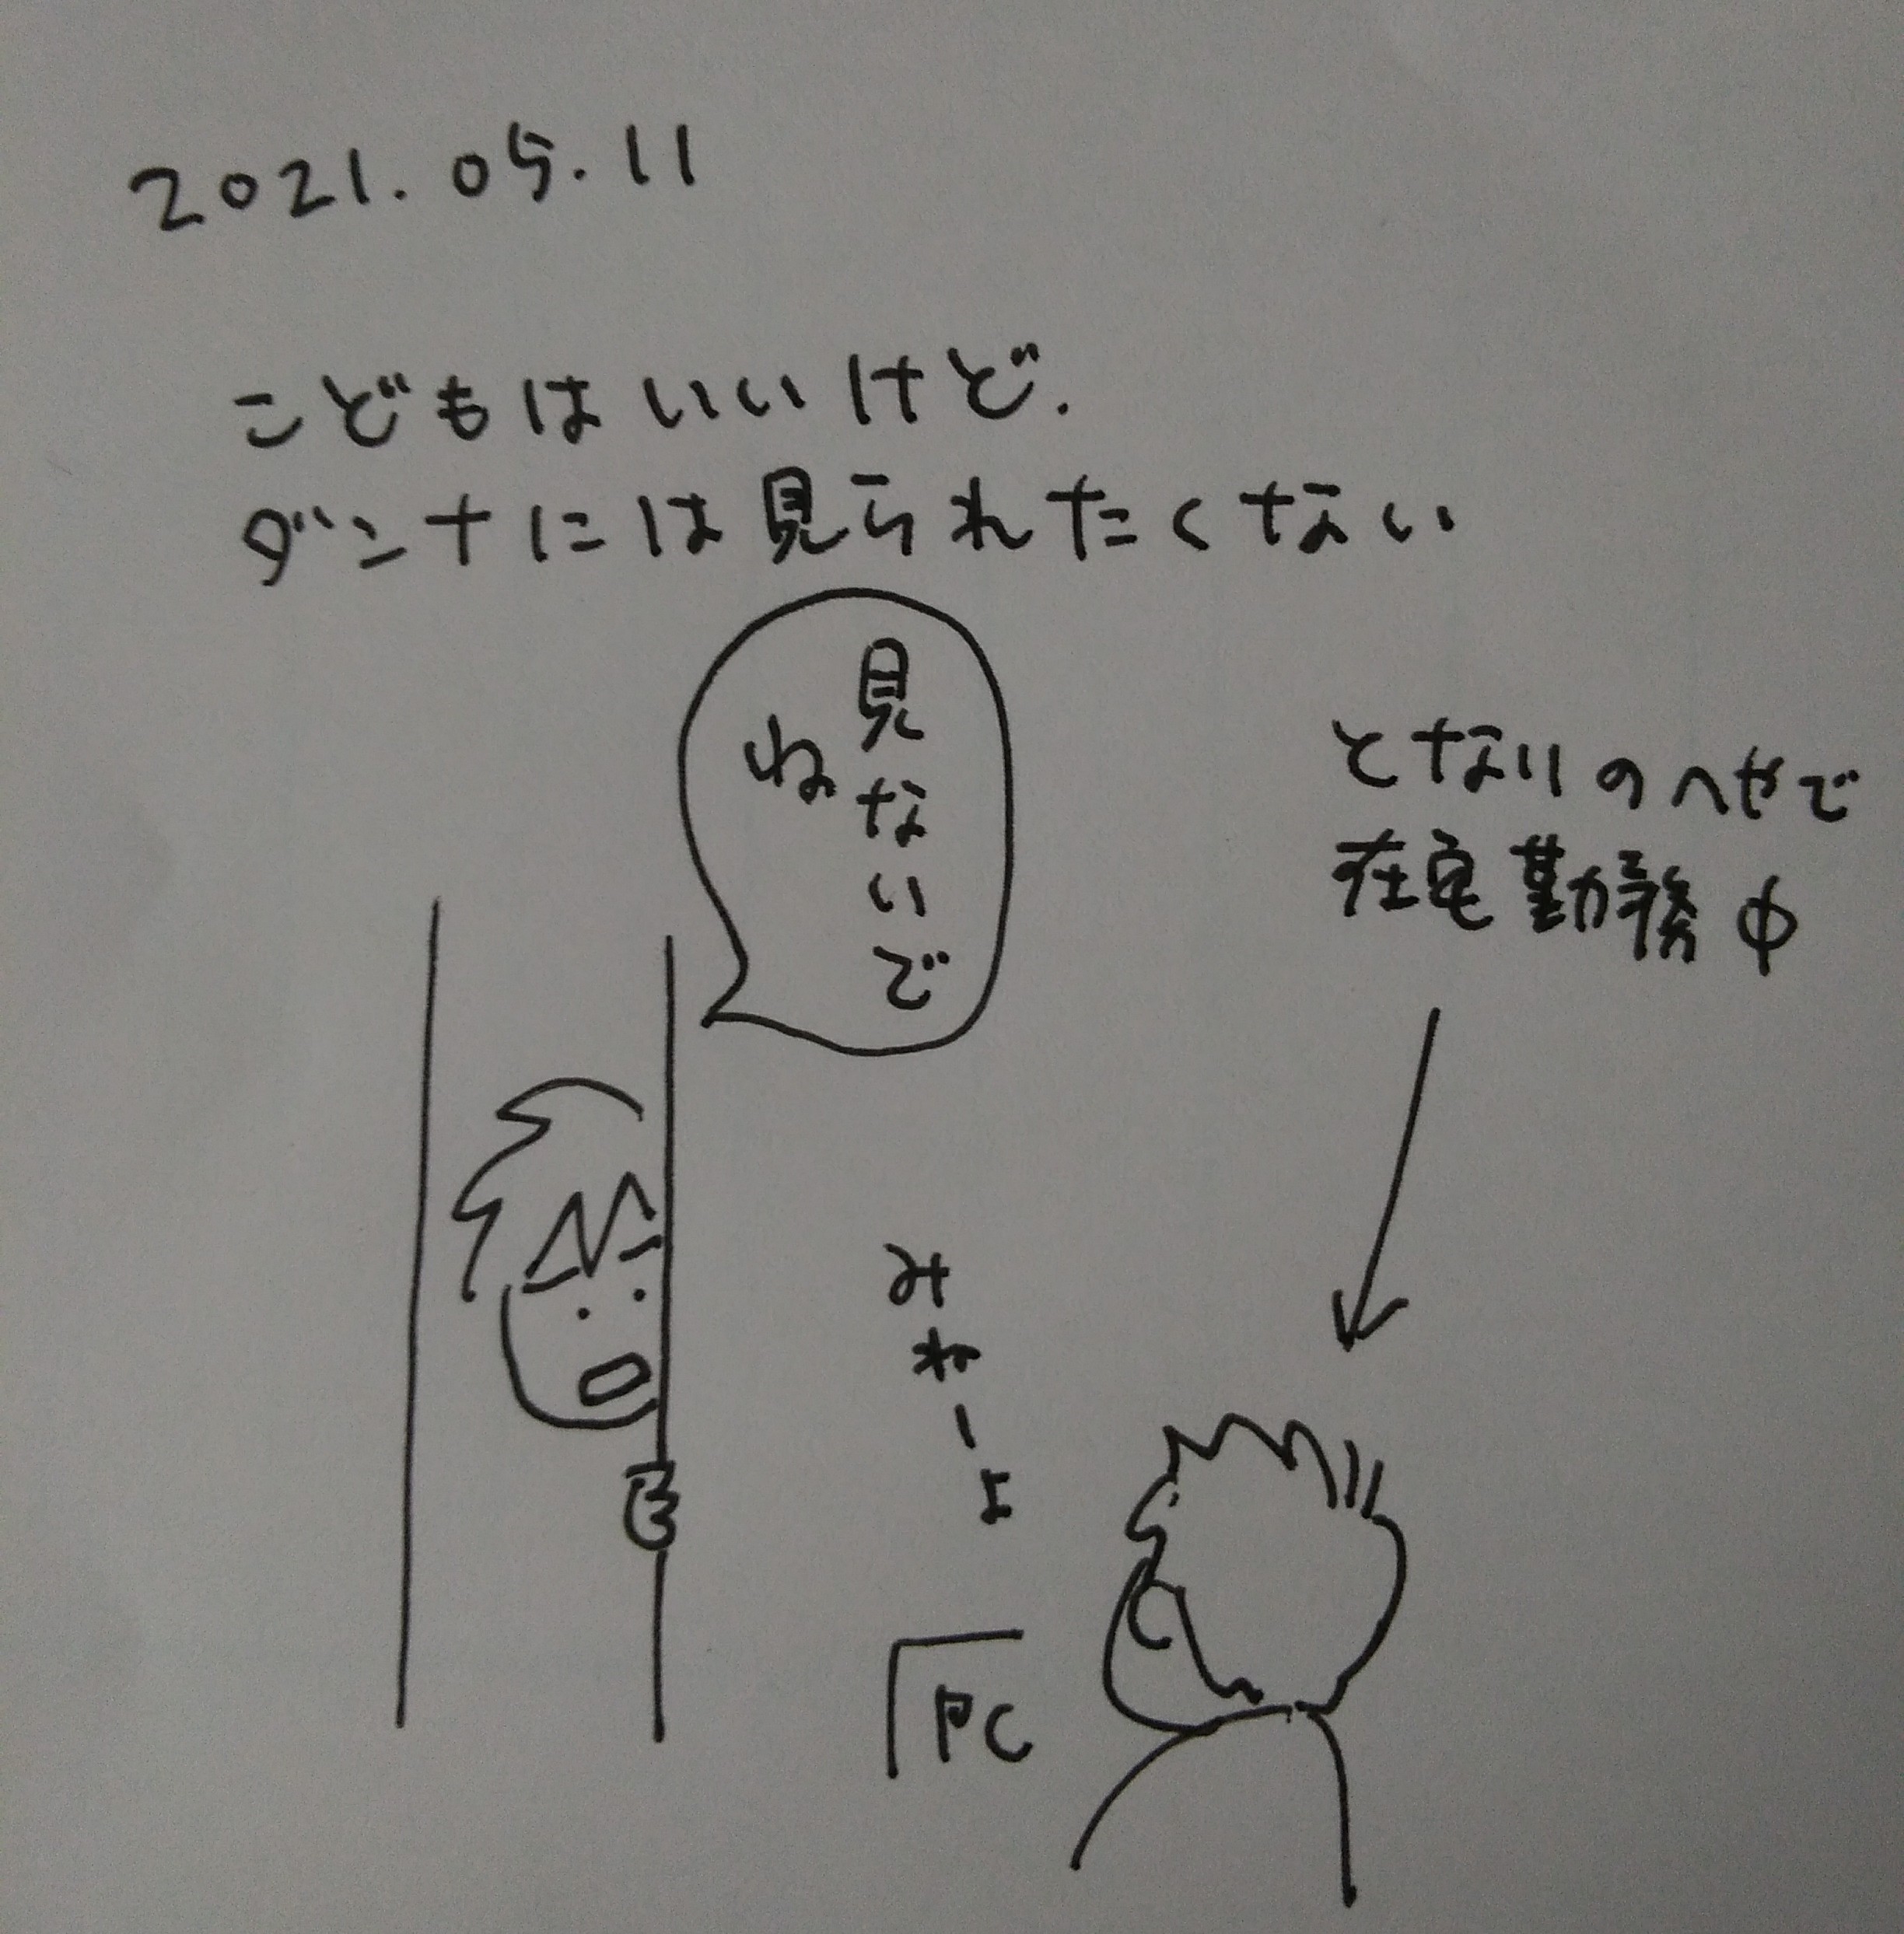 2021.05.11
こどもはいいけど.
ダンナには見られたくない
見ないで
ね
となりのへやで
在宅勤務中
みねーよ
PC